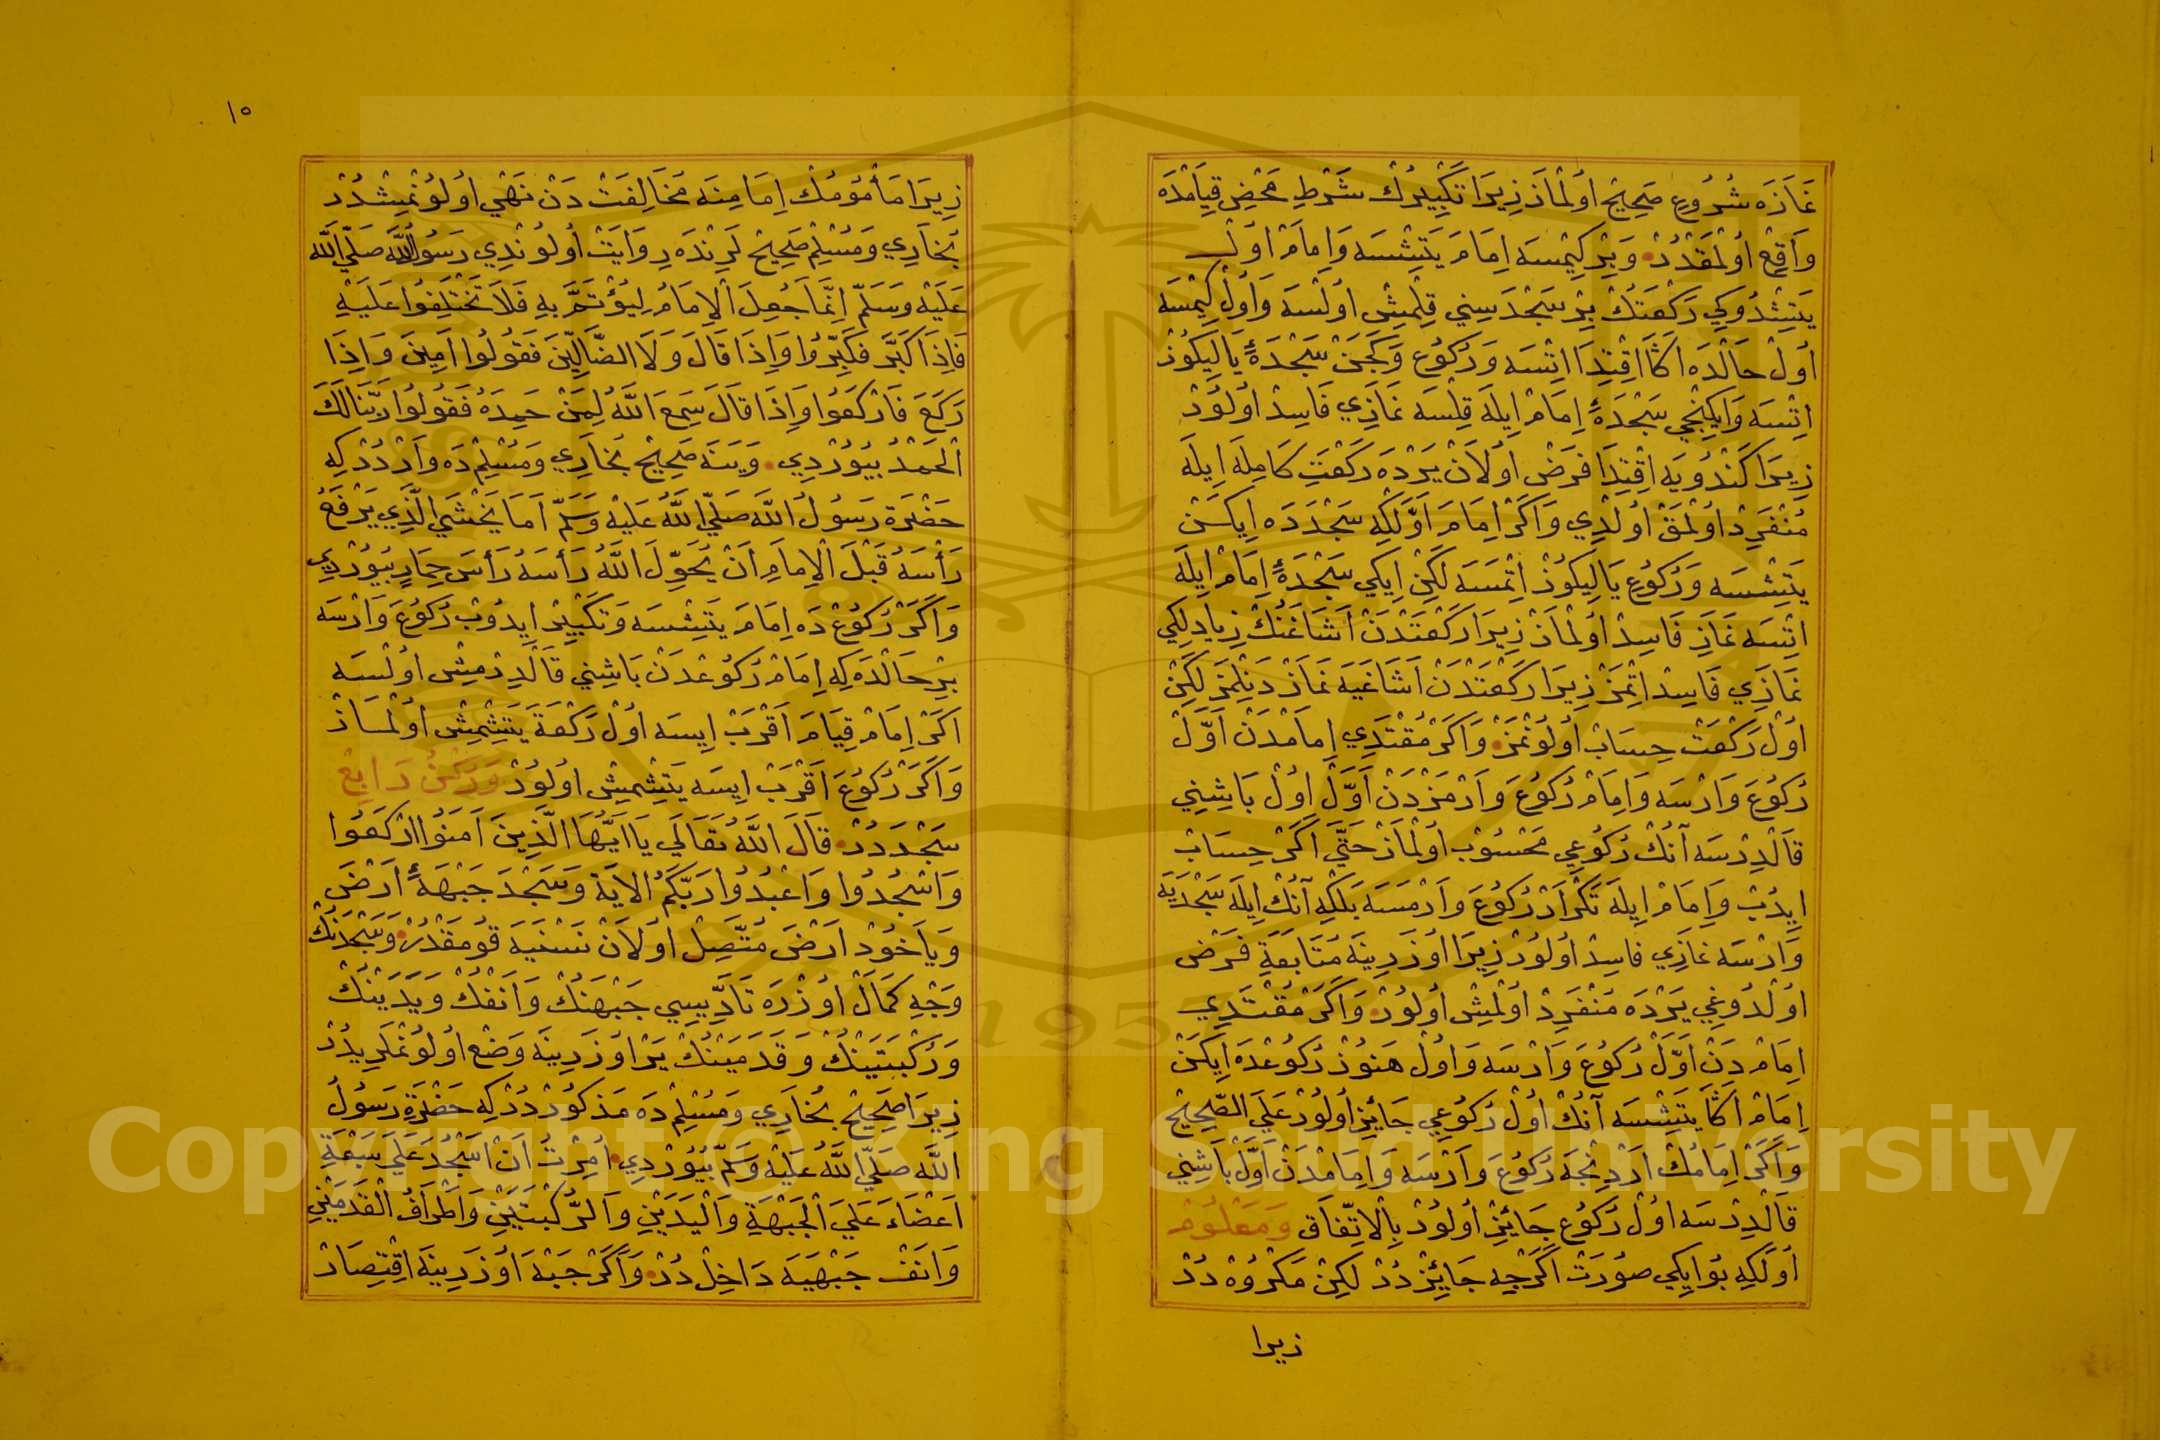 نَمَازَه شُرُوعِ صَحِيحْ اُولْمَاذْ زِيرَا تَكْبِيرُكْ شَرْطِ مَحْضِ قِيَامْدَه
وَاقِعْ اُولْمَقْدُدْ وَبِرْ كِيمْسَه اِمَامَ يَتِشْسَه وَاِمَامْ اوْلْ
يَتِشْدُوكِي رَكْعَتُكْ بِرْ سَجْدَسِنِي قِلْمِشْ اُولْسَه وَاُولْ كِيمْسَه
اُولْ حَالْدَه اكَا اقْتِدَا اتْسَه وَرُكُوعْ وَكَجَنْ سَجْدَهءِ يَالِيكُوزْ
اِتْسَه وَايكِنْجِي سَجْدَهءِ اِمَامْ اِيلَه قِلْسَه نَمَازِي فَاسِدْ اُولُورْ
زِيرَا كَنْدُويَه اقْتِدَا فَرَضْ اُولَانْ يَرْدَه رَكْعَتِ كَامِلَه اِيلَه
مُنْفَرِدْ اُولْمَقْ اُولْدِي وَاكَرْ اِمَامَ اَوَّلْكِه سَجْدَدَه اِيكَنْ
يَتِشْسَه وَرُكُوعِ يَالِيكُوزْ اِتْمَسَه لَكِنْ اِيكِي سَجْدَهءِ اِمَامْ اِيلَه
اتْسَه نَمَازِ فَاسِدْ اُولْمَاذْ زِيرَا رَكْعَتْدَنْ اَشَاغَنُكْ زِيَادَلِكِي
نَمَازِي فَاسِدْ اتْمَزْ زِيرَا رَكْعَتْدَنْ اَشَاغَيَه نَمَازْ دَنِلْمَزْ لَكِنْ
اُولْ رَكْعَتْ حِسَابْ اُولُونْمَزْ وَاكَرْ مُقْتَدِي اِمَامْدَنْ اَوَّلْ
رُكُوعَ وَارْسَه وَاِمَامْ رُكُوعَ وَارْمَزْدَنْ اَوَّلْ اُولْ بَاشِنِي
قَالْدِرْسَه آنُكْ رُكُوعِي مَحْسُوبْ اُولْمَاذْ حَتَّي اكَرْ حِسَابْ
اِيدُبْ وَاِمَامْ اِيلَه تَكْرَارْ رُكُوعَ وَارْمَسَه بَلْكِه آنُكْ اِيلَه سَجْدَيَه
وَارْسَه نمَازِي فاسِدْ اُولُورْ زِيرَا اوُزَرِينَه مُتَابَعَةِ فَرَضْ
اوُلْدُوغِي يَرْدَه مُنْفَرِدْ اُولْمِشْ اُولُورْ وَاكَرْ مُقْتَدِي
اِمَامْ دَنْ اَوَّلْ رُكُوعَ وَارْسَه وَاوُلْ هَنُوزْ رُكُوعْدَه اِيكَنْ
اِمَامْ اكَا يَتِشْسَه آنُكْ اُولْ رُكُوعِي جَائِزْ اُولُورْ عَلَي الصَّحِيحْ
وَاكَرْ اِمَامُكْ اَرْدِنْجَه رُكُوعَ وَارْسَه وَاِمَامْدَنْ اَوَّلْ بَاشِنِي
قَالْدِرْسَه اُولْ رُكُوعِ جَائِزْ اُولُورْ بِالْاتِّفَاقِ وَمَعْلُومْ
اُولَكِه بُو اِيكِي صُورَتْ اكَرْچِه جَائِزْ دُرْ لَكِنْ مَكْرُوهْ دُرْ
زيرا
١٥
زِيرَا مَأْمُومُكْ اِمَامِنَه مُخَالِفَتْ دَنْ نَهْي اُولُونْمِشْدُرْ
بُخَارِي وَمُسْلِمْ صَحِيحْ لَرِنْدَه رِوَايَتْ اُولُونْدِي رَسُولُ اللَّه صَلَّي اللَّه
عَلَيْهِ وَسَلَّمْ اِنَّمَا جُعِلَ الْاِمَامُ لِيُؤْتَمَّ بِهِ فَلَا تَخْتَلِفُوا عَلَيْهِ
فَاِذَا كَبَّرَ فَكَبِّرُوا وَاِذَا قَالَ وَلَا الضَّالِّينَ فَقُولُوا اَمِينَ وَاِذَا
رَكَعَ فَارْكَعُوا وَاِذَا قَالَ سَمِعَ اللَّهُ لِمَنْ حَمِدَهُ فَقُولُوا رَبَّنَا لَكَ
الْحَمْدُ بُيُورْدِي وَيَنَه صَحِيحْ بُخَارِي وَمُسْلِمْ دَه وَارْدُرْ كِه
حَضْرَة رَسُولُ اللَّه صَلَّي اللَّهُ عَلَيْهِ وَسَلَّمْ اَمَا يَخْشَي الَّذِي يَرْفَعُ
رَأْسَهُ قَبْلَ الْاِمَامِ اَنْ يُحَوِّلَ اللَّهُ رَأْسَهُ رَأْسَ حِمَارٍ بُيُورْدِي
وَاكَرْ رُكُوعْ دَه اِمَامَ يَتِشْسَه وَتَكْبِيرْ اِيدُوبْ رُكُوعَ وَارْسَه
بِرْ حَالْدَه كِه اِمَامْ رُكُوعْدَنْ بَاشِنِي قَالْدِرْمِشْ اُولْسَه
اكَرْ اِمَامْ قِيَامَ اَقْرَبْ اِيسَه اُولْ رَكْعَةَ يَتِشْمِشْ اُولْمَاذْ
وَاكَرْ رُكُوعَ اَقْرَبْ اِيسَه يَتِشْمِشْ اُولُورْ وَرُكْنُ رَابِعْ
سَجْدَدُرْ قَالَ اللَّهُ تَعَالَي يَا اَيُّهَا الَّذِينَ اَمَنُوا ارْكَعُوا
وَاسْجُدُوا وَاعْبُدُوا رَبَّكُمُ الاَيَة وَسَجْدَ جَبْهَهءِ اَرْضَ
وَيَاخُودْ اَرْضَ مُتَّصِلْ اُولَانْ نَسْنَيَه قُومَقْدُرْ وَسَجْدَنُكْ
وَجْهِ كَمَالْ اُوزْرَه تَأَدِّيسِي جَبْهَنُكْ وَانَفُكْ وَيَدَيْنُكْ
وَرُكْبَتَيْنُكْ وَقَدَمَيْنُكْ يَرْ اُوزَرِينَه وَضْع اُولُونْمَلَرِيدُرْ
زِيرَا صَحِيحْ بُخَارِي وَمُسْلِمْ دَه مَذْكُورْ دُرْكِه حَضْرَةِ رَسُولُ
اللَّه صَلَّي اللَّهُ عَلَيْهِ وَسَلَّمْ بُيُورْدِي اُمِرْتُ اَنْ اَسْجُدَ عَلَي سَبْعَةِ
اَعْضَاءَ عَلَي الْجَبْهَةِ وَالْيَدَيْنِ وَالرُّكْبَتَيْنِ وَاَطْرَافُ الْقَدَمَيْنِ
وَانَفْ جَبْهَيَه دَاخِلْ دُرْ وَاكَرْ جَبْهَ اوُزَرِينَه اقْتِصَارْ